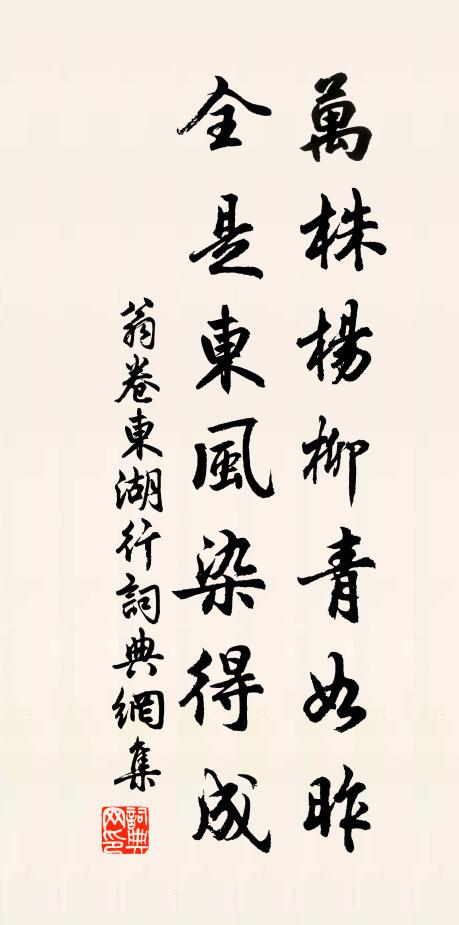 萬株楊柳青如昨
全是東風染得成
翁卷東湖行詞典網集
詞典網印